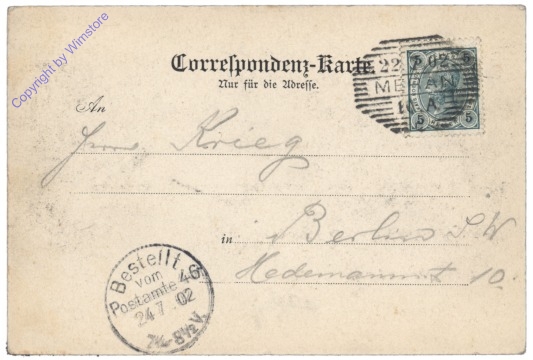 Copyright by Wimstore
Correspondenz-Karte
Nur für die Adresse.
22 7 02
MERAN
10 A
5 5
5 5
An
Herrn Krieg
in Berlin S.W
Hedemannstr 10.
Bestellt
vom
Postamte 46
24 7 02
7½-8½V